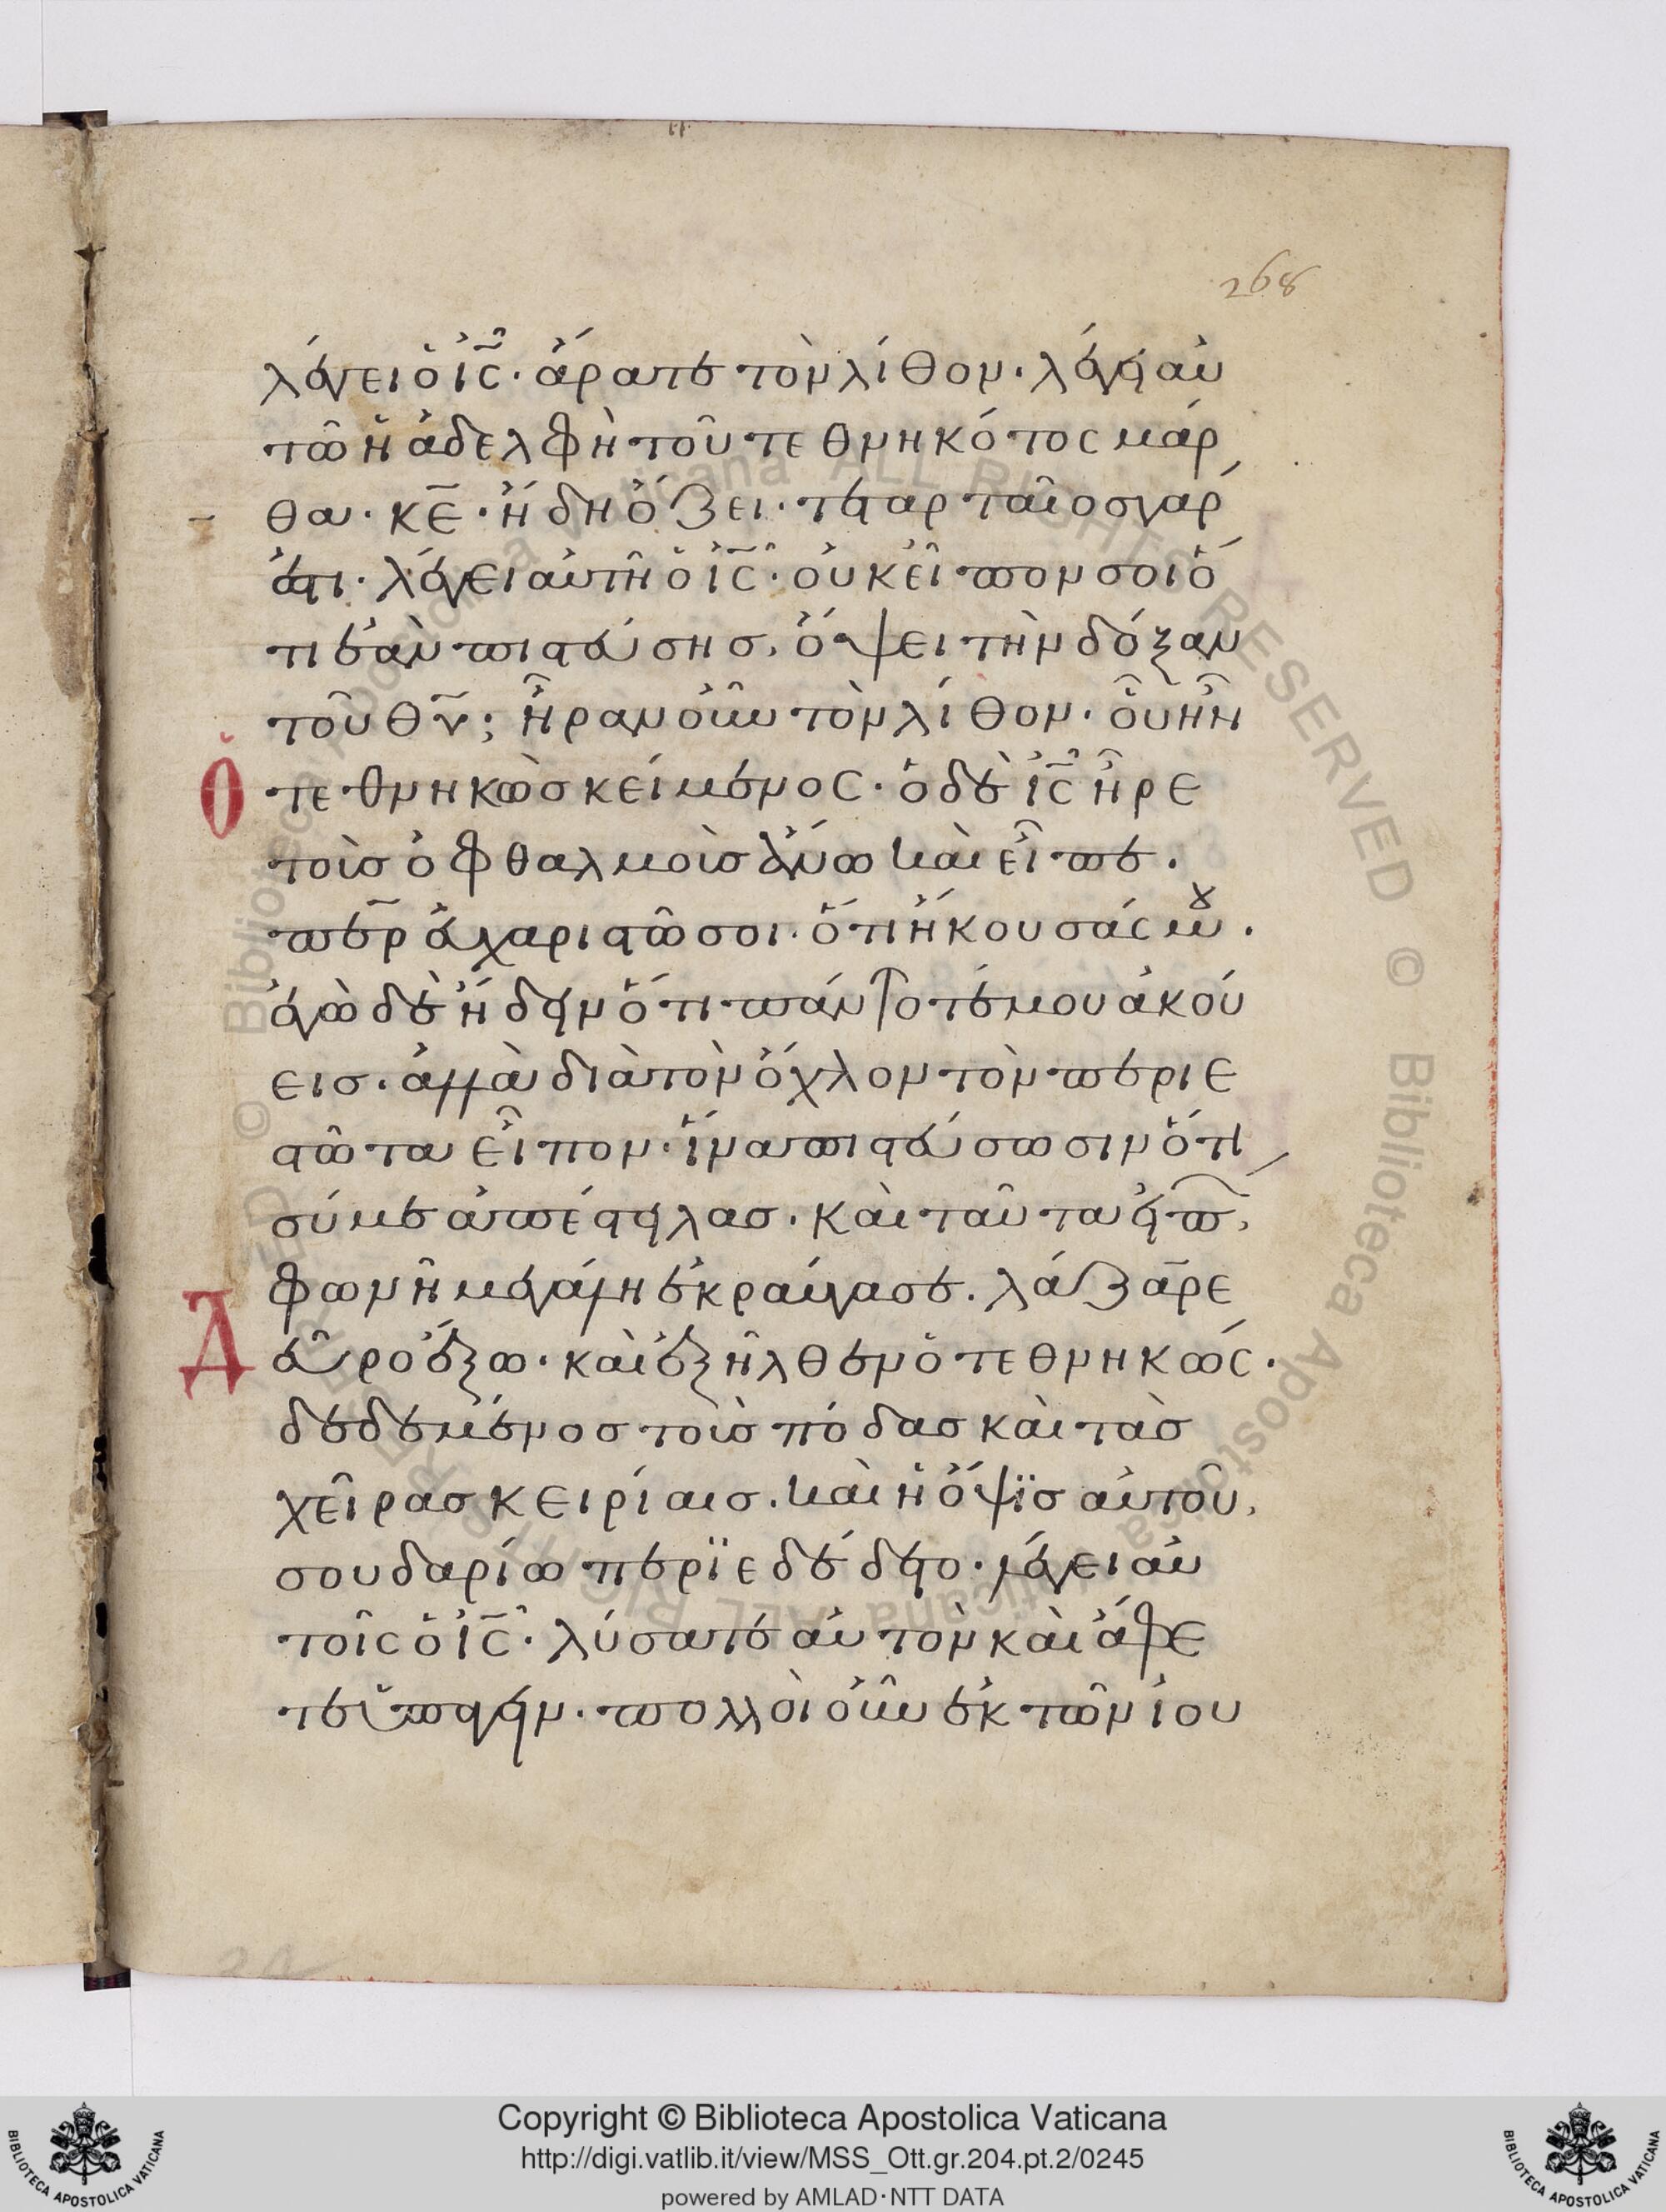 268
λέγει ὁ ἰ̅ς̅· ἄρατε τὸν λίθον· λέγει αὐ
τῶ ἡ ἀδελφὴ τοῦ τεθνηκότος μάρ
θα· κ̅ε̅· ἤδη ὄζει· τεταρταῖος γάρ
ἐστι· λέγει αὐτῆ ὁ ἰ̅ς̅· οὐκ εἶπον σοι ὅ
τι ἐὰν πιστεύσης, ὄψει τὴν δόξαν
τοῦ θ̅υ̅; ἦραν οὖν τὸν λίθον· οὗ ἦν
Ὁ τεθνηκὼς κείμενος· ὁ δὲ ἰ̅ς̅ ἦρε
τοὺς ὀφθαλμοὺς ἄνω καὶ εἶπε.
πε̅ρ εὐχαριστῶ σοι· ὅτι ἤκουσάς μου.
ἐγὼ δὲ ἤδειν ὅτι πάντοτέ μου ἀκού
εις· ἀλλὰ διὰ τὸν ὄχλον τὸν περιε
στῶτα εἶπον· ἵνα πιστεύσωσιν ὅτι
σύ με ἀπέστειλας· καὶ ταῦτα εἰπ,
φωνῆ μεγάλη ἐκραύγασε. λάζαρε
Δ δεῦρο ἔξω· καὶ ἐξῆλθεν ὁ τεθνηκώς.
δεδεμένος τοὺς πόδας καὶ τὰς
χεῖρας κειρίαις. καὶ ἡ ὄψϊς αὐτοῦ,
σουδαρίω περϊεδέδετο· λέγει αὐ
τοῖς ὁ ἰ̅ς̅· λύσατε αὐτὸν καὶ ἄφε
τε ὑπάγειν· πολλοὶ οὖν ἐκ τῶν ἰου
Copyright © Biblioteca Apostolica Vaticana
http://digi.vatlib.it/view/MSS_Ott.gr.204.pt.2/0245
powered by AMLAD·NTT DATA